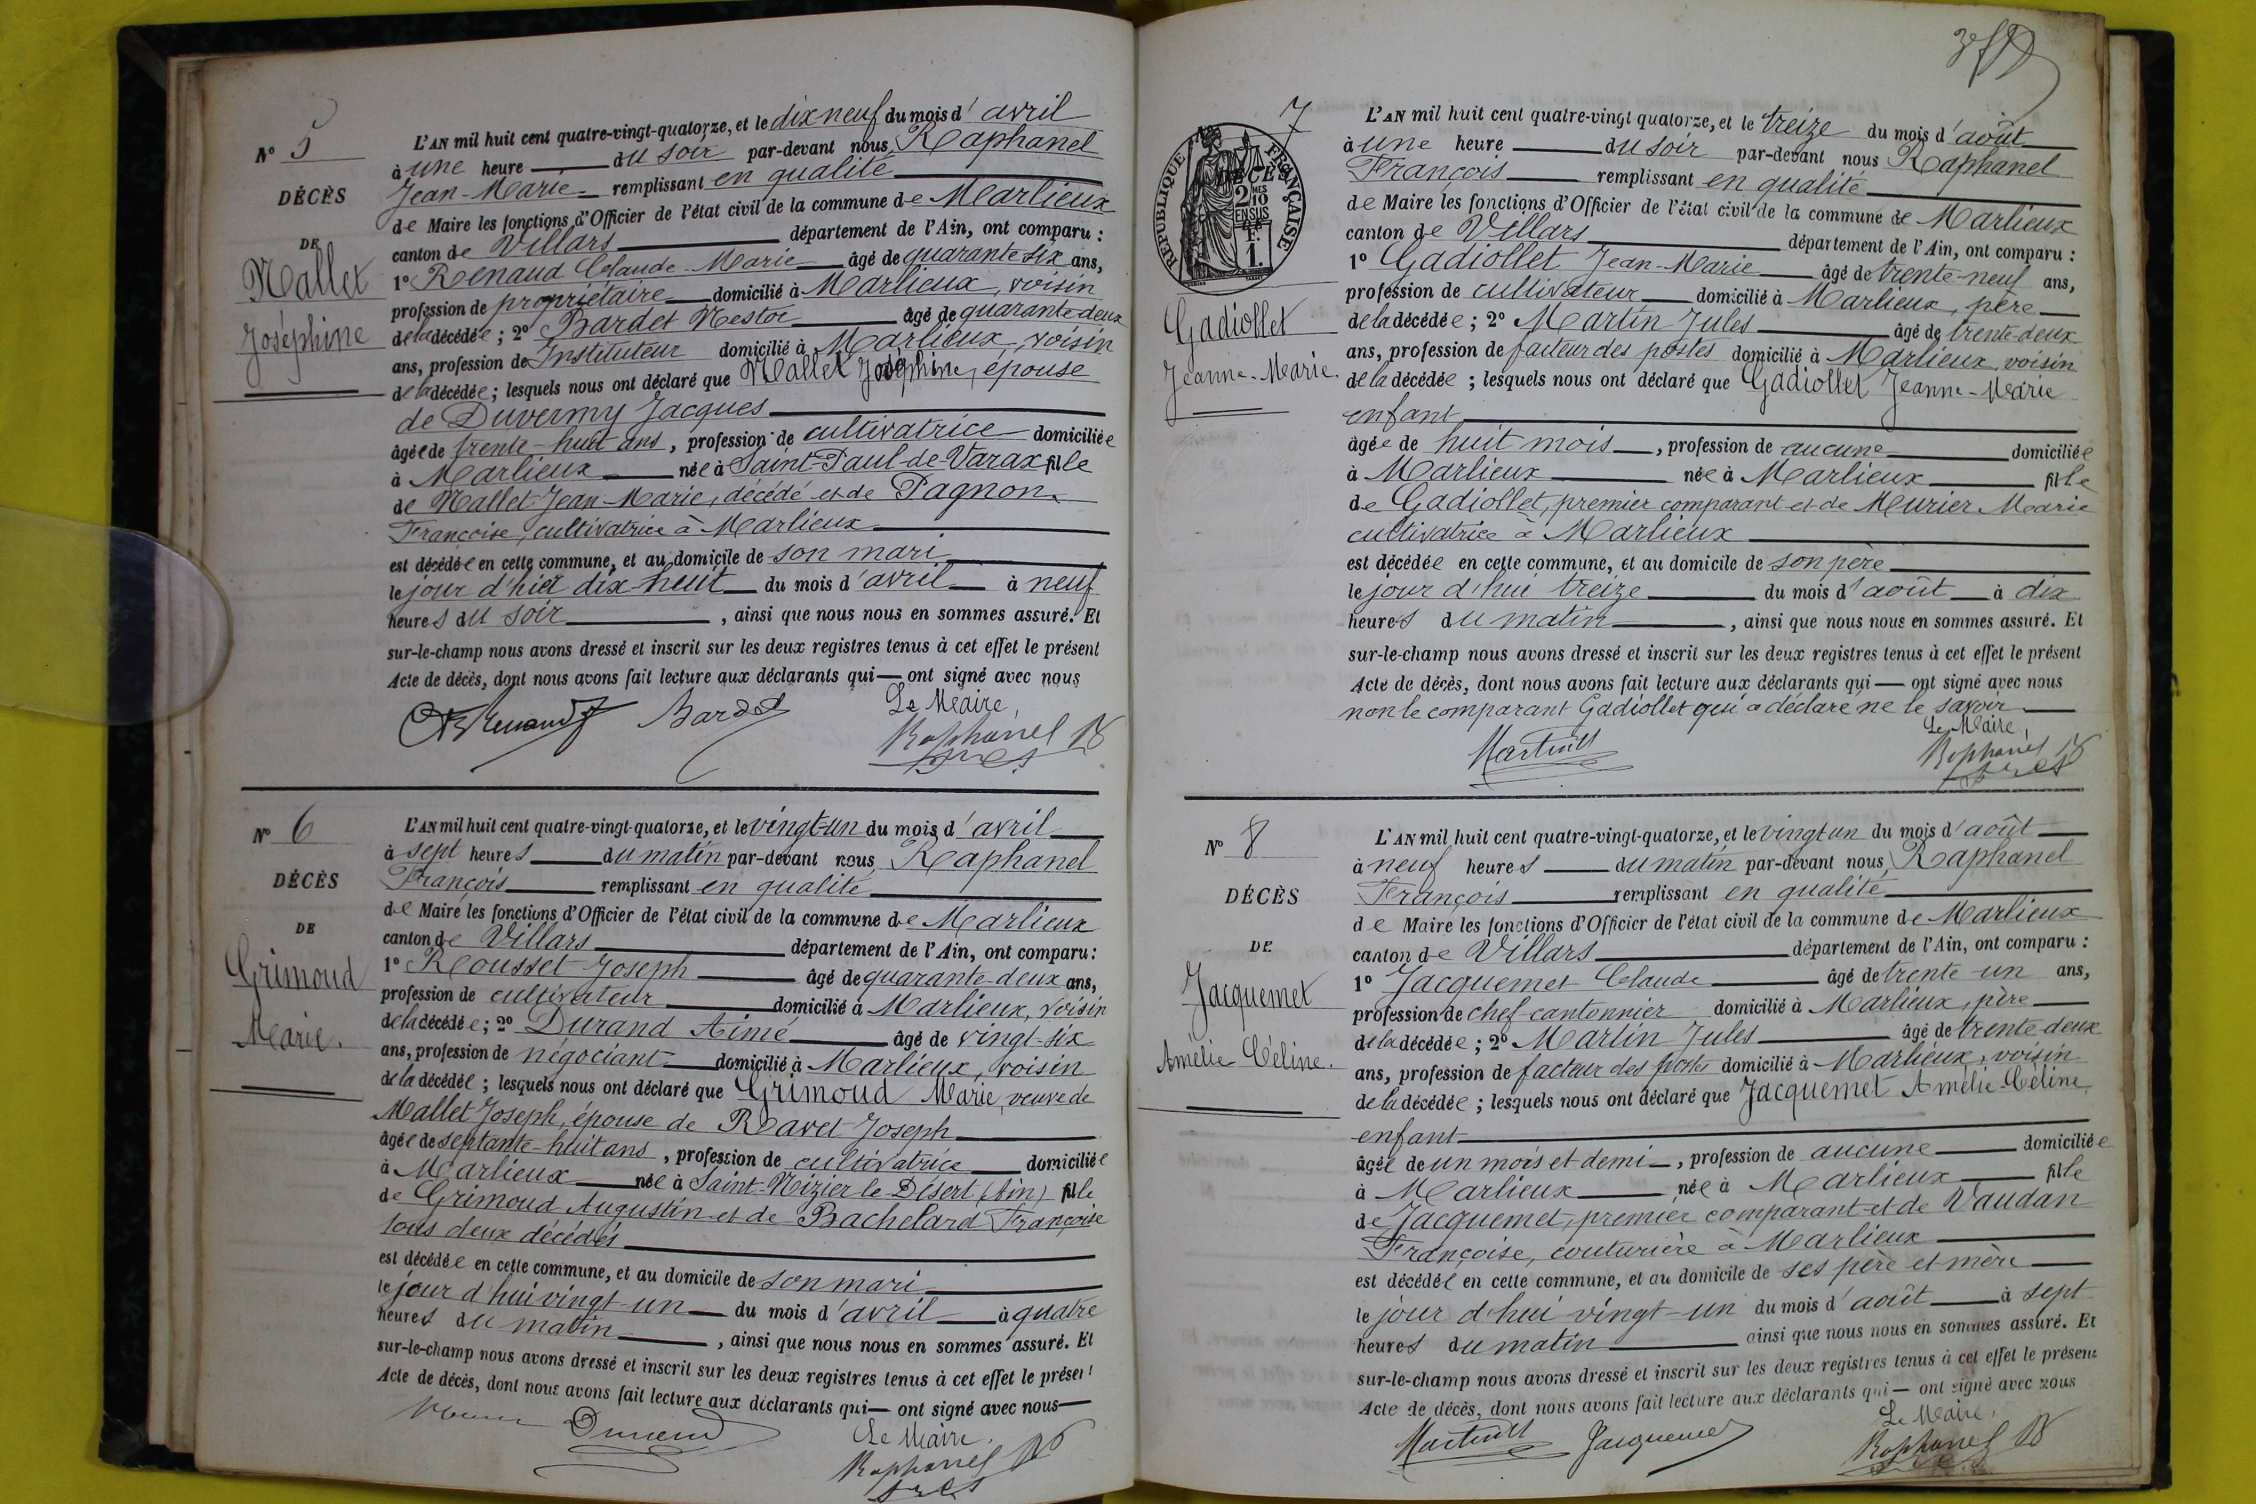 Nº 5
DÉCÈS
DE
Mallet
Joséphine
L'AN mil huit cent quatre-vingt-quatorze, et le dix neuf du mois d'avril
à une heure du soir par-devant nous, Raphanel
Jean-Marie remplissant en qualité
de Maire les fonctions d'Officier de l'état civil de la commune de Marlieux
canton de Villars département de l'Ain, ont comparu :
1º Renaud Claude-Marie âgé de quarante six ans,
profession de propriétaire domicilié à Marlieux, voisin
de la décédée ; 2º Bardet Nestor âgé de quarante-deux
ans, profession de Instituteur domicilié à Marlieux, voisin
de la décédée ; lesquels nous ont déclaré que Mallet Joséphine, épouse
de Duvermy Jacques
âgée de trente-huit ans, profession de cultivatrice domiciliée
à Marlieux née à Saint-Paul-de-Varax fille
de Mallet Jean-Marie, décédé et de Pagnon
Françoise, cultivatrice à Marlieux
est décédée en cette commune, et au domicile de son mari
le jour d'hier dix-huit du mois d'avril à neuf
heures du soir , ainsi que nous nous en sommes assuré. Et
sur-le-champ nous avons dressé et inscrit sur les deux registres tenus à cet effet le présent
Acte de décès, dont nous avons fait lecture aux déclarants qui — ont signé avec nous
Le Maire,
Renaud Bardet Raphanel
Nº 6
DÉCÈS
DE
Grimoud
Marie.
L'AN mil huit cent quatre-vingt-quatorze, et le vingt-un du mois d'avril
à sept heures du matin par-devant nous, Raphanel
François remplissant en qualité
de Maire les fonctions d'Officier de l'état civil de la commune de Marlieux
canton de Villars département de l'Ain, ont comparu :
1º Rousset Joseph âgé de quarante-deux ans,
profession de cultivateur domicilié à Marlieux, voisin
de la décédée ; 2º Durand Aimé âgé de vingt-six
ans, profession de négociant domicilié à Marlieux, voisin
de la décédée ; lesquels nous ont déclaré que Grimoud Marie, veuve de
Mallet Joseph, épouse de Ravet Joseph
âgée de septante-huit ans, profession de cultivatrice domiciliée
à Marlieux née à Saint-Nizier le Désert (Ain) fille
de Grimoud Augustin et de Bachelard Françoise
tous deux décédés
est décédée en cette commune, et au domicile de son mari
le jour d'hui vingt-un du mois d'avril à quatre
heures du matin , ainsi que nous nous en sommes assuré. Et
sur-le-champ nous avons dressé et inscrit sur les deux registres tenus à cet effet le présent
Acte de décès, dont nous avons fait lecture aux déclarants qui — ont signé avec nous
Le Maire.
Durand Raphanel
7
RÉPUBLIQUE FRANÇAISE
2 MES 10
EN SUS
F.
1.
DÉCÈS
DE
Gadiollet
Jeanne-Marie.
L'AN mil huit cent quatre-vingt quatorze, et le treize du mois d'août
à une heure du soir par-devant nous Raphanel
François remplissant en qualité
de Maire les fonctions d'Officier de l'état civil de la commune de Marlieux
canton de Villars département de l'Ain, ont comparu :
1º Gadiollet Jean-Marie âgé de trente-neuf ans,
profession de cultivateur domicilié à Marlieux, père
de la décédée ; 2º Martin Jules âgé de trente-deux
ans, profession de facteur des postes domicilié à Marlieux, voisin
de la décédée ; lesquels nous ont déclaré que Gadiollet Jeanne-Marie
enfant
âgée de huit mois , profession de aucune domiciliée
à Marlieux née à Marlieux fille
de Gadiollet, premier comparant et de Meurier Marie
cultivatrice à Marlieux
est décédée en cette commune, et au domicile de son père
le jour d'hui treize du mois d'août à dix
heures du matin , ainsi que nous nous en sommes assuré. Et
sur-le-champ nous avons dressé et inscrit sur les deux registres tenus à cet effet le présent
Acte de décès, dont nous avons fait lecture aux déclarants qui — ont signé avec nous
non le comparant Gadiollet qui a déclaré ne le savoir
Le Maire,
Martin Raphanel
Nº 8
DÉCÈS
DE
Jacquemet
Amélie Céline.
L'AN mil huit cent quatre-vingt-quatorze, et le vingt un du mois d'août
à neuf heures du matin par-devant nous, Raphanel
François remplissant en qualité
de Maire les fonctions d'Officier de l'état civil de la commune de Marlieux
canton de Villars département de l'Ain, ont comparu :
1º Jacquemet Claude âgé de trente-un ans,
profession de chef-cantonnier domicilié à Marlieux, père
de la décédée ; 2º Martin Jules âgé de trente-deux
ans, profession de facteur des postes domicilié à Marlieux, voisin
de la décédée ; lesquels nous ont déclaré que Jacquemet Amélie-Céline,
enfant
âgée de un mois et demi , profession de aucune domiciliée
à Marlieux née à Marlieux fille
de Jacquemet, premier comparant et de Vaudan
Françoise, couturière à Marlieux
est décédée en cette commune, et au domicile de ses père et mère
le jour d'hui vingt-un du mois d'août à sept
heures du matin ainsi que nous nous en sommes assuré. Et
sur-le-champ nous avons dressé et inscrit sur les deux registres tenus à cet effet le présent
Acte de décès, dont nous avons fait lecture aux déclarants qui — ont signé avec nous
Le Maire.
Martin Jacquemet Raphanel